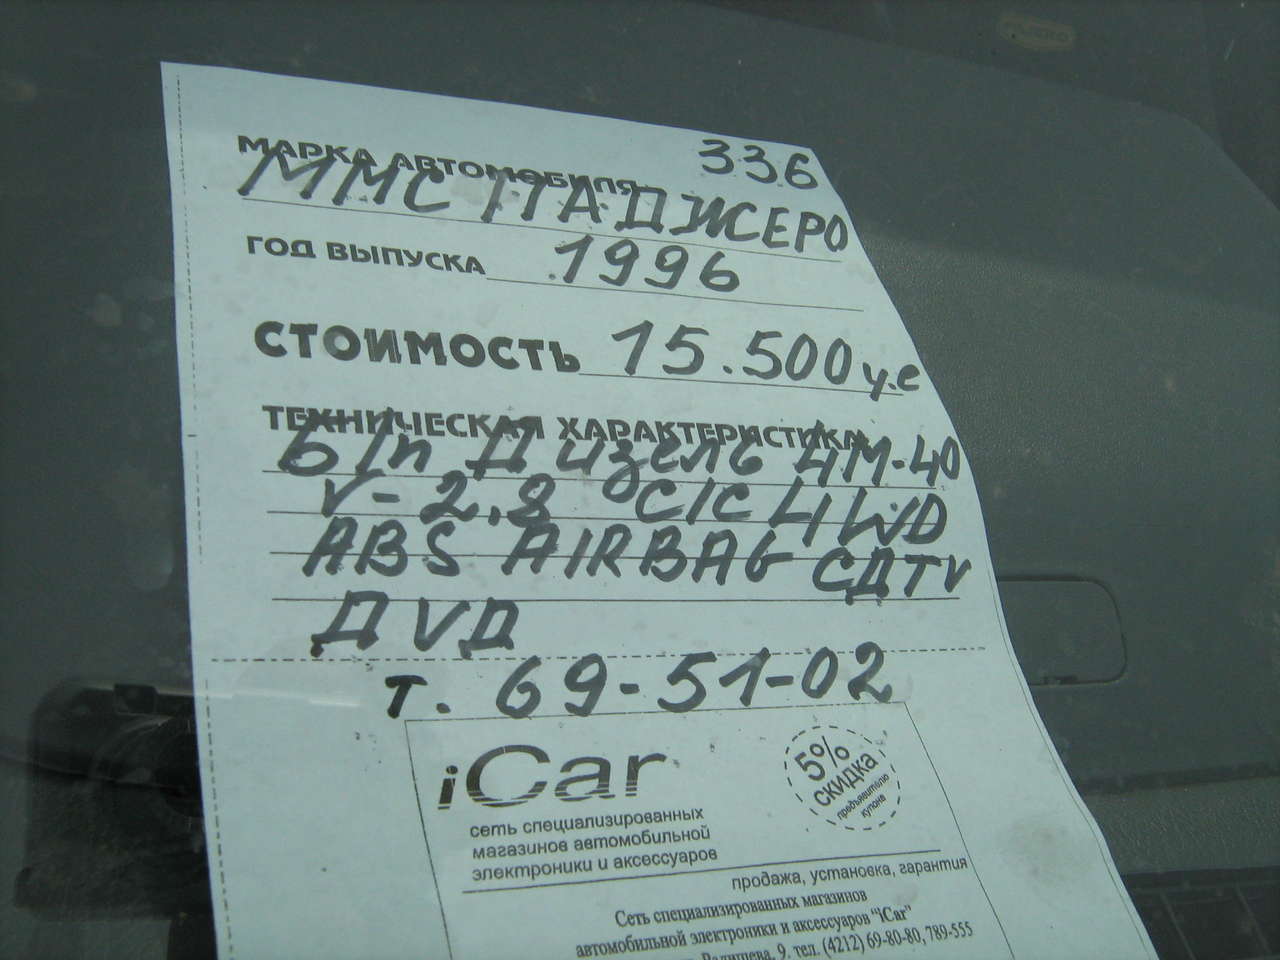 336
МАРКА АВТОМОБИЛЯ ММС ПАДЖЕРО
ГОД ВЫПУСКА 1996
СТОИМОСТЬ 15.500 у.е
ТЕХНИЧЕСКАЯ ХАРАКТЕРИСТИКА
Б/п Дизель 4М-40
V-2,8 С/С 4WD
ABS AIRBAG СДTV
ДVД
т. 69-51-02
iCar
5% скидка
предъявителю
купона
сеть специализированных
магазинов автомобильной
электроники и аксессуаров
продажа, установка, гарантия
Сеть специализированных магазинов
автомобильной электроники и аксессуаров "iCar"
Радищева, 9. тел. (4212) 69-80-80, 789-555